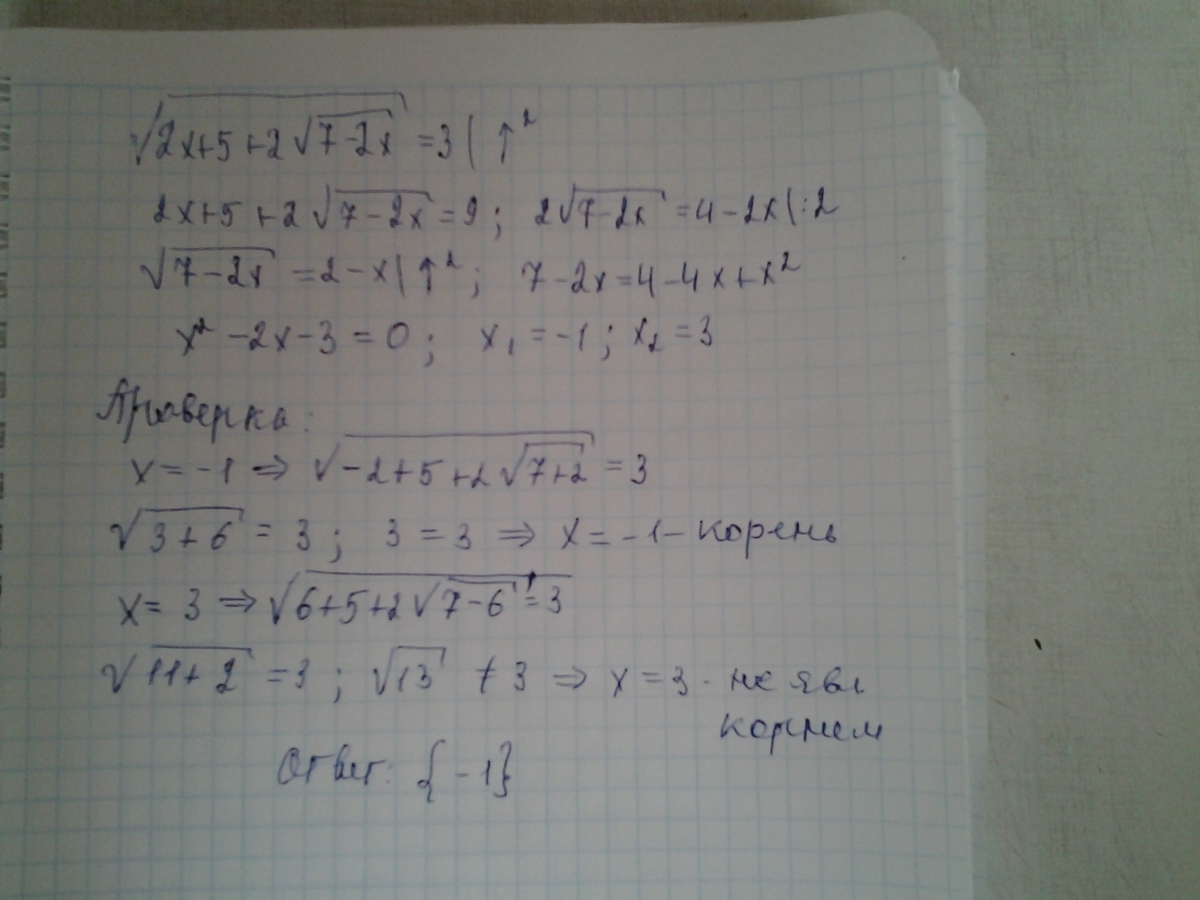 √(2x+5+2√(7-2x)) =3 | ↑²
2x+5+2√(7-2x)=9; 2√(7-2x)=4-2x|:2
√(7-2x)=2-x|↑²; 7-2x=4-4x+x²
x²-2x-3=0; x₁=-1; x₂=3
Проверка:
x=-1 ⇒ √(-2+5+2√(7+2))=3
√(3+6)=3; 3=3 ⇒ x=-1- корень
x=3 ⇒ √(6+5+2√(7-6))=3
√(11+2)=3; √13 ≠3 ⇒ x=3- не явл
корнем
Ответ: {-1}